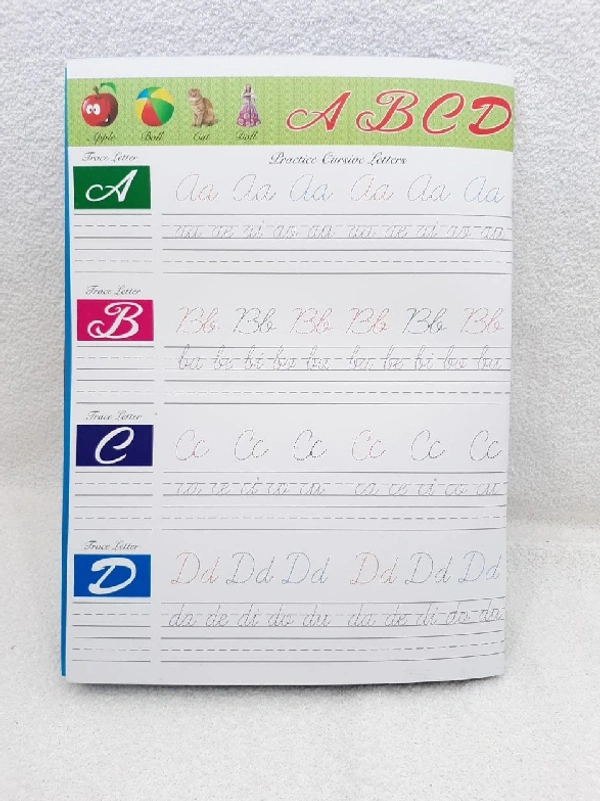 Apple Ball Cat Doll A B C D
Trace Letter Practice Cursive Letters
A Aa Aa Aa Aa Aa Aa
Trace Letter
B Bb Bb Bb Bb Bb Bb
ba be bi bo bu ba be bi bo bu
Trace Letter
C Cc Cc Cc Cc Cc Cc
ca ce ci co cu ca ce ci co cu
Trace Letter
D Dd Dd Dd Dd Dd Dd
da de di do du da de di do du